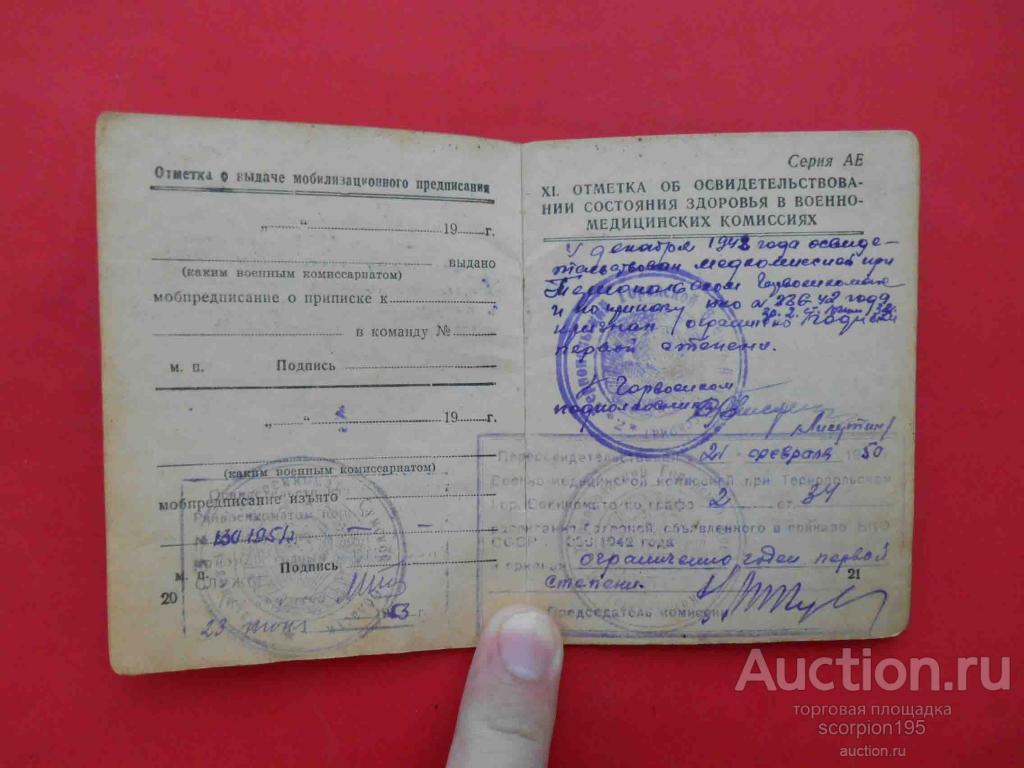 Отметка о выдаче мобилизационного предписания
„ “ 19 г.
выдано
(каким военным комиссариатом)
мобпредписание о приписке к
в команду №
м. п. Подпись
„ “ 19 г.
(каким военным комиссариатом)
мобпредписание изъято
130 195
м. п. Подпись
20
23 июня 53 г.
Серия АЕ
XI. ОТМЕТКА ОБ ОСВИДЕТЕЛЬСТВОВА-
НИИ СОСТОЯНИЯ ЗДОРОВЬЯ В ВОЕННО-
МЕДИЦИНСКИХ КОМИССИЯХ
декабря 1948 года освиде-
тельствован медкомиссией при
Тернопольском Горвоенкомате
и по приказу НКО № 336-42 года
признан ограничено годным
первой степени.
Горвоенком
подполковник
Лисутин
Переосвидетельствован 21 февраля 1950
Военно-медицинской комиссией при Тернопольском
Гор. Военкомате по графе 2 ст. 34
расписания болезней, объявленного в приказе НКО
СССР 336 1942 года
и признан ограниченно годен первой
степени
Председатель комиссии
21
Auction.ru
торговая площадка
scorpion195
auction.ru